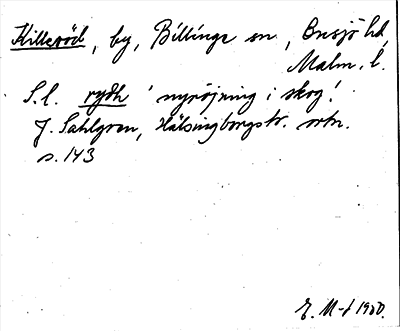 Killeröd, by, Billinge sn, Onsjö hd,
Malm. l.
S.l. rydh 'nyröjning i skog'.
J. Sahlgren, Hälsingborgstr. ortn.
s. 143
E. M-f 1930.